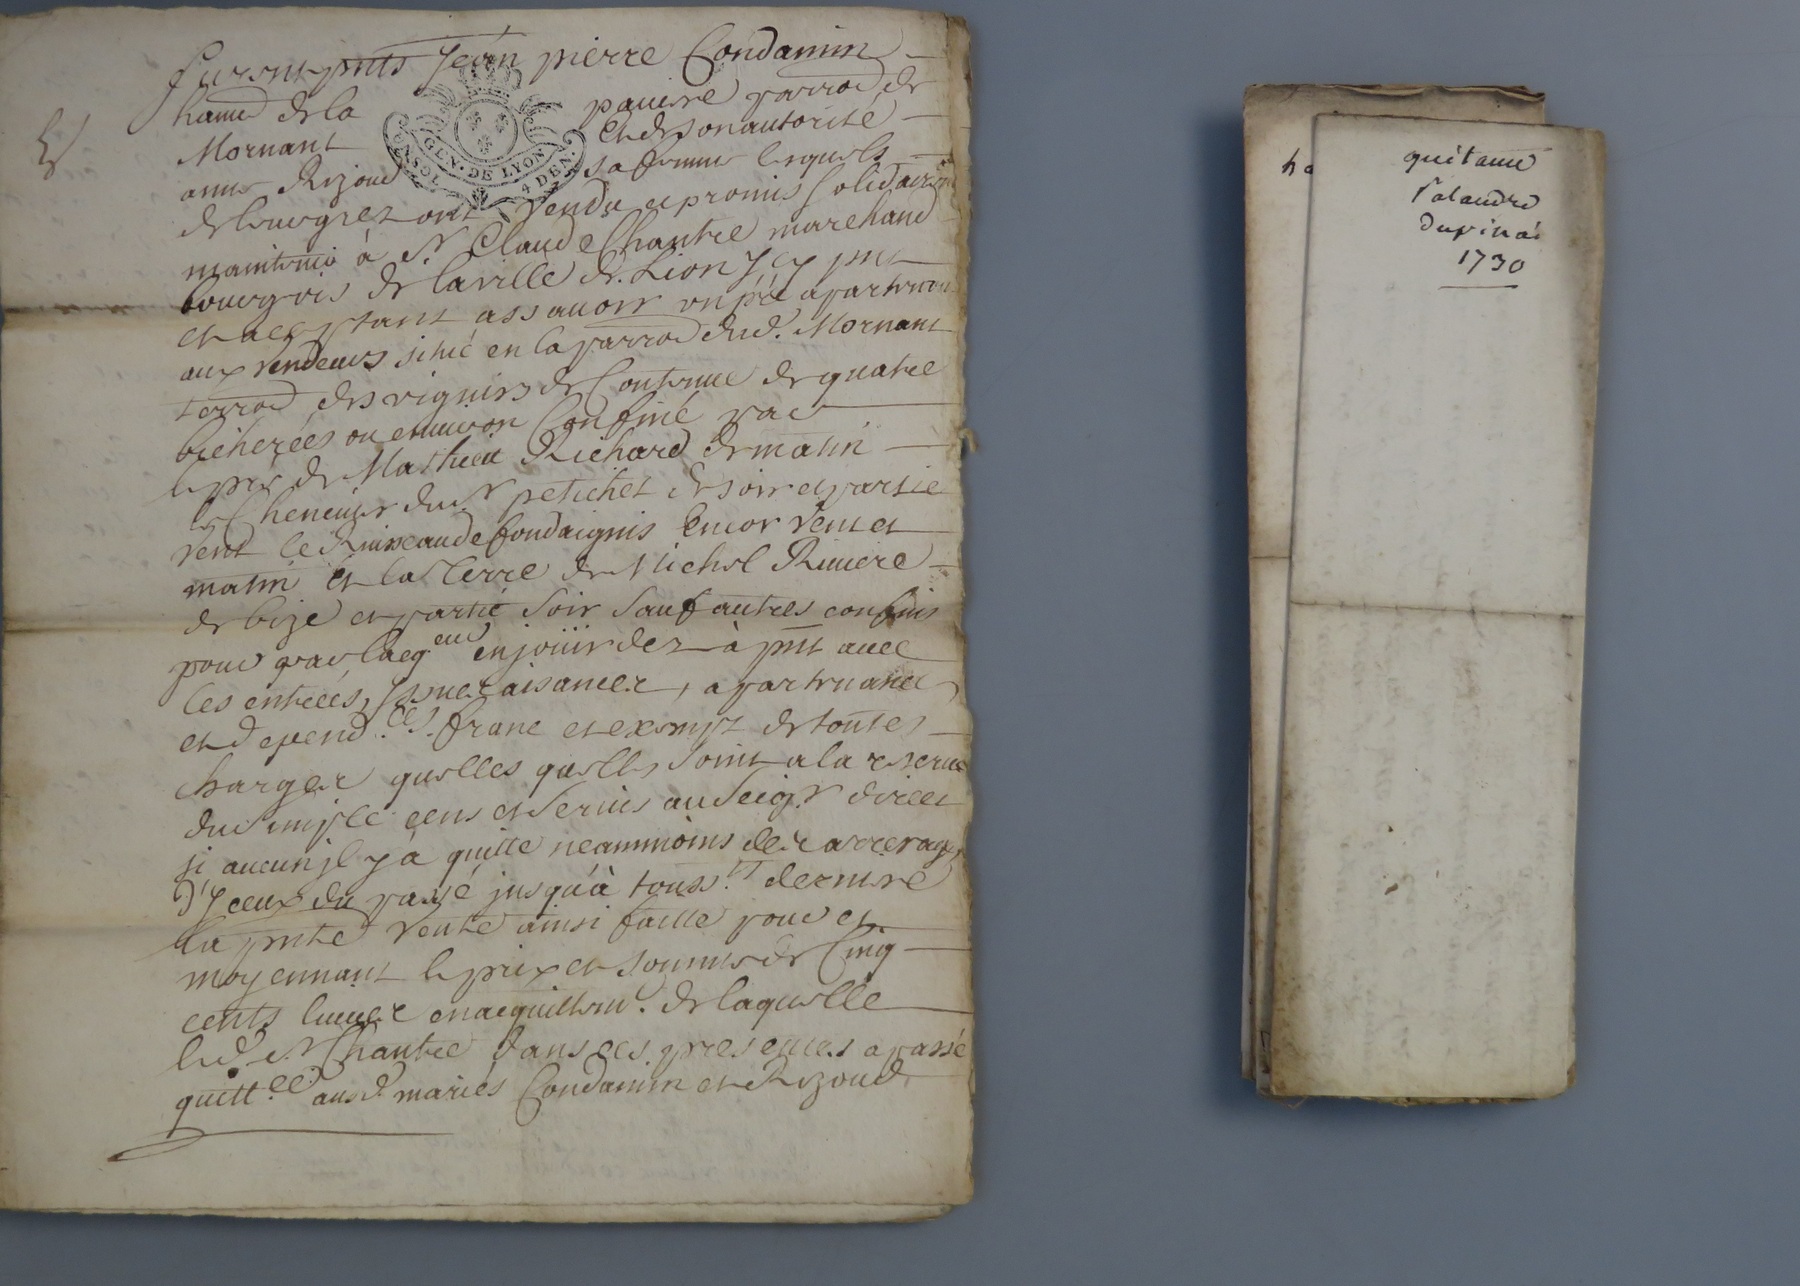 furent pnts Jean pierre Condamin
hant de la pauiere parroe de
Mornant et de son autorité
anne Rizoud sa femme lesquels
GEN. DE LYON
4 DEN.
de leur grez ont vendu et promis solidairem
maintenir à Sr Claude Chantre marchand
bourgeois de la ville de Lion Jcy pnt
et acceptant assauoir un pré apartenant
aux vendeurs situé en la parroe dud. Mornant
terroe des vignies de Contenue de quatre
bicherées ou enuiron Confiné par
le pré de Mathieu Richard de matin
le Chenevier du Sr petichet de soir et partie
vent le Ruisseau de fondaignis Encor vent et
matin et la terre de Michel Riuiere
de bize et partie soir sauf autres confins
pour par lacqeur en jouir dez à pnt auec
les entrées, Jssuez aisancez, apartenances
et depend.ces franc et exempt de toutes
chargez quelles quelles soint a la reserue
du simple cens et seruis au seigr direct
si aucun jl y a quitte neammoins dez arrerages
d'Jceux du passé jusqu'à touss.ts derniere
la pnte vente ainsi faitte pour et
moyennant le prix et somme de Cinq
cents liurez en acquittem.t de laquelle
led. Sr Chantre dans ces presentes a passé
quitt.ce aud.s mariés Condamin et Rizoud
quitance
Palandre
dupinai
1730